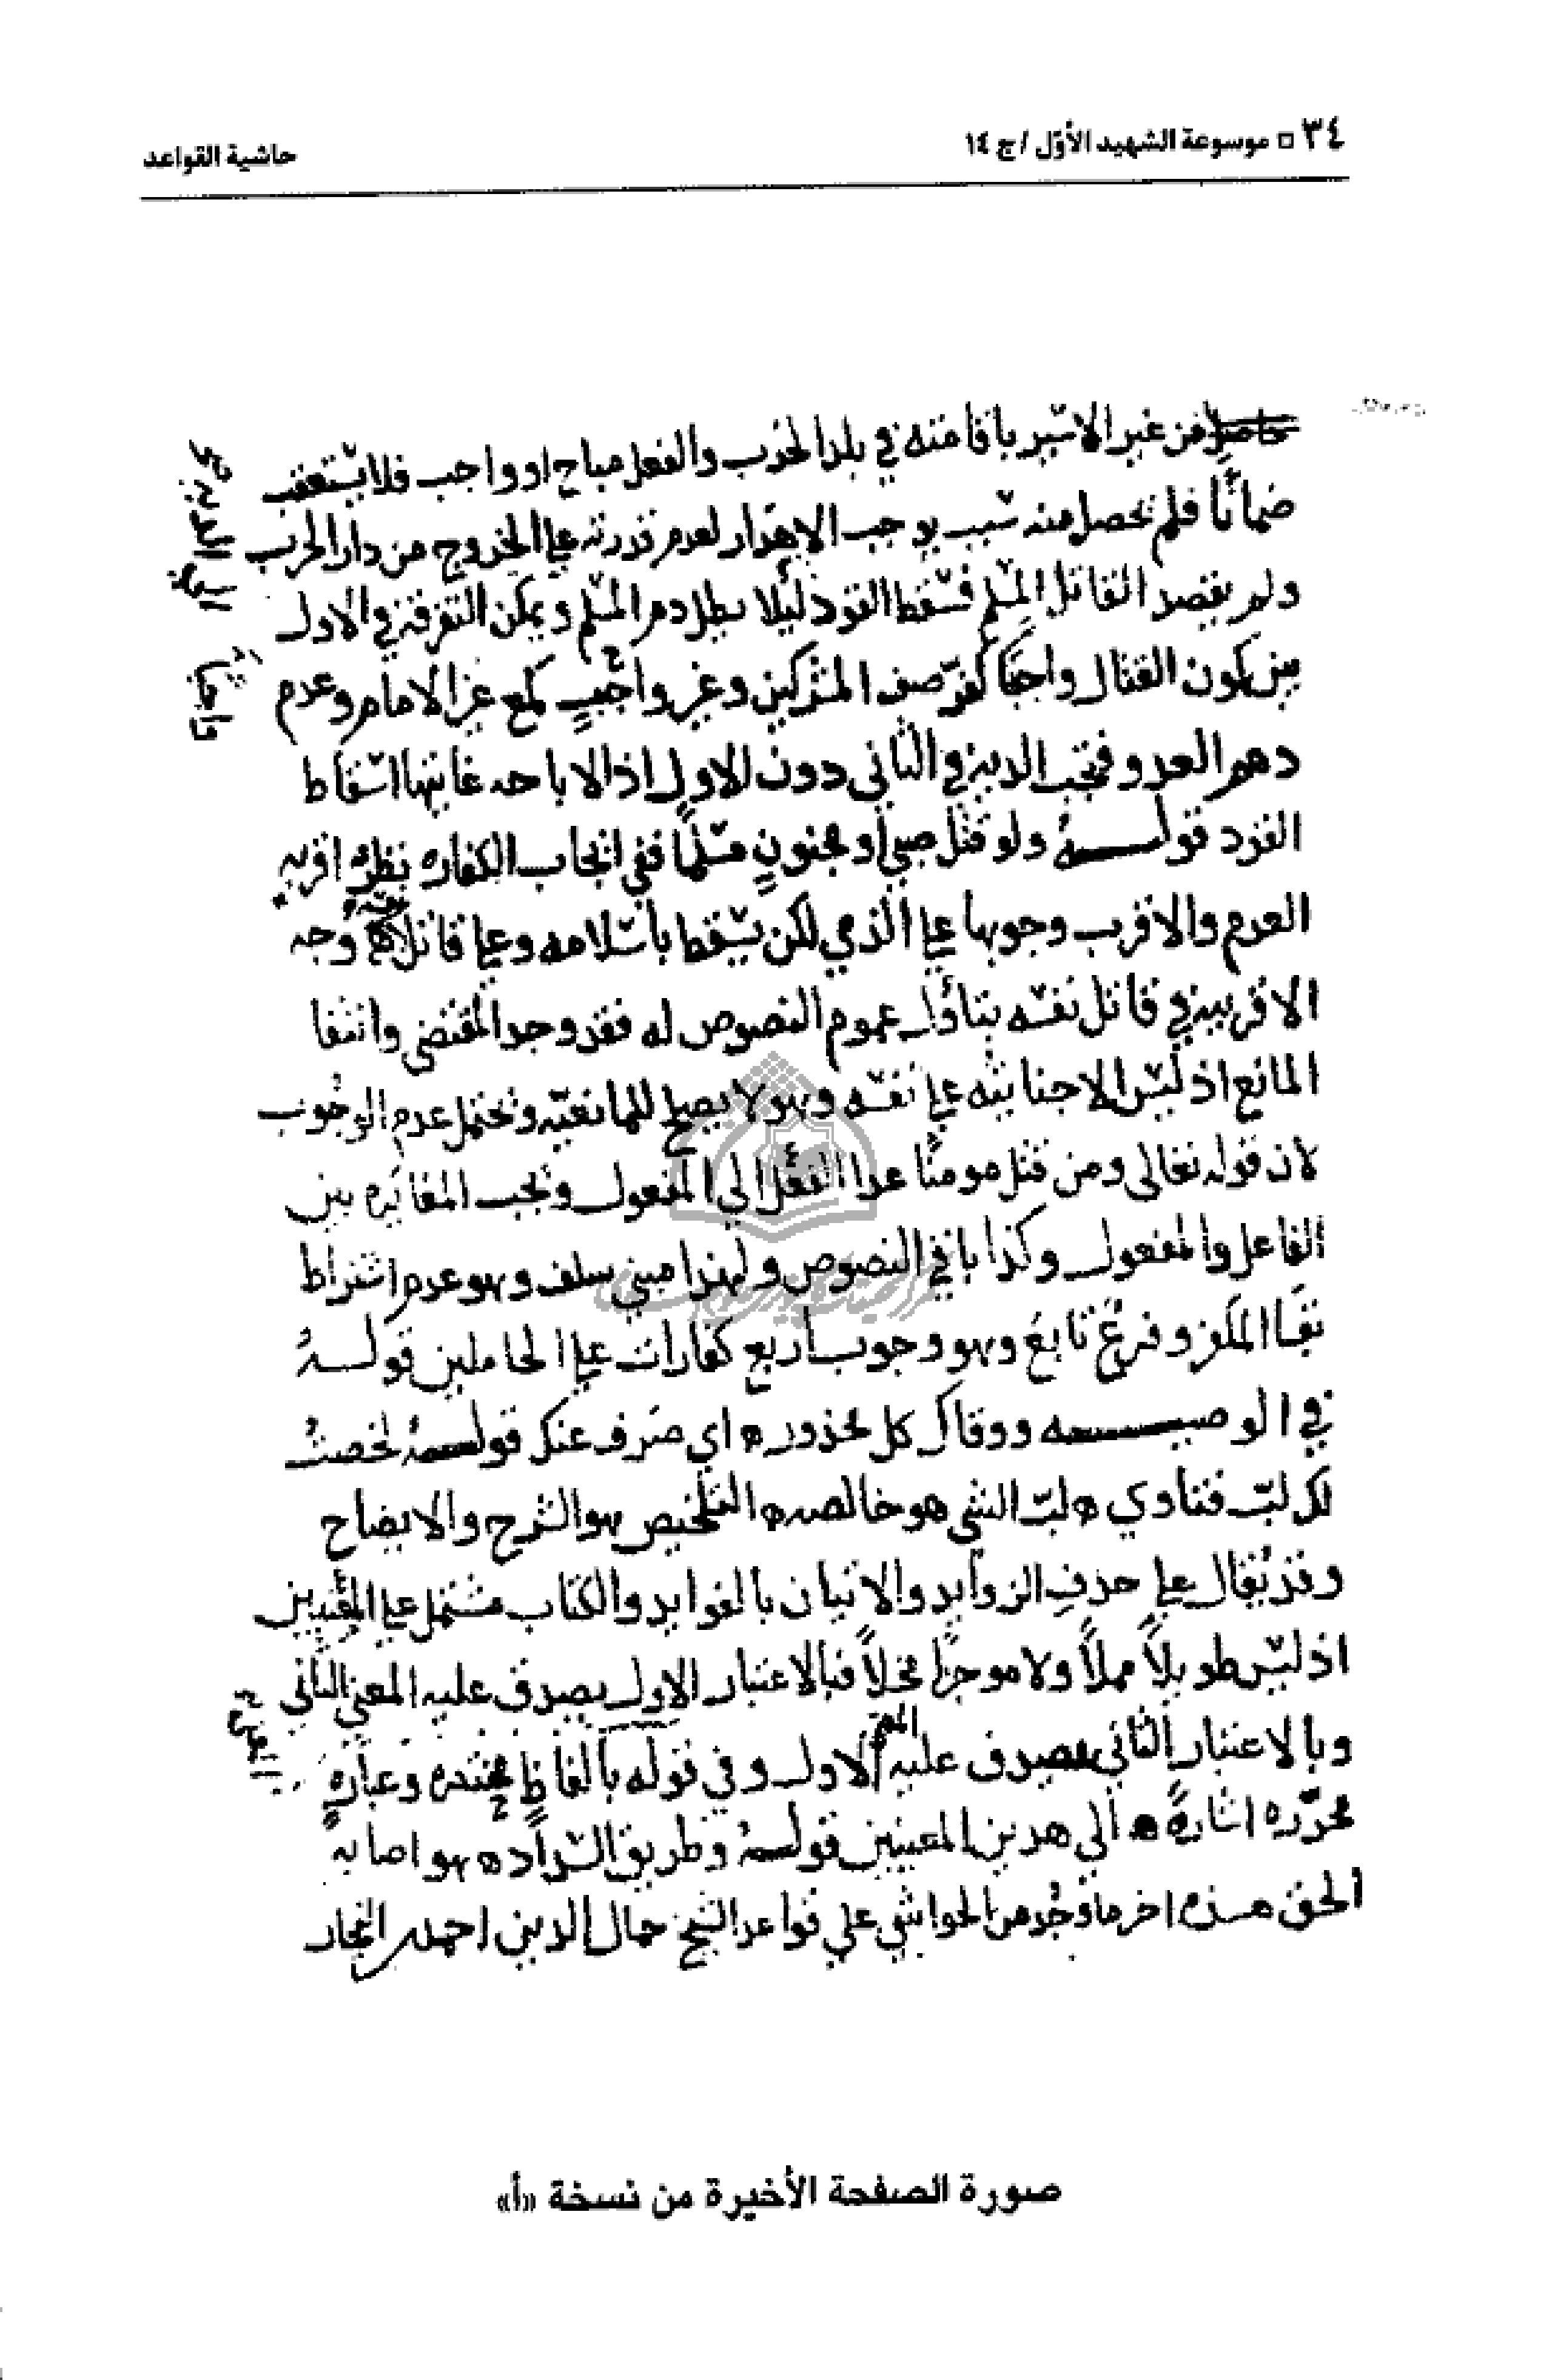 ٣٤ □ موسوعة الشهيد الأوّل / ج ١٤
حاشية القواعد
من غير الاسير باقامته في بلد الحرب والفعل مباح او واجب فلا يستعقب
ضمانًا فلم يحصل منه سبب يوجب الاهدار لعدم قدرته على الخروج من دار الحرب
ولم يقصد القاتل المسلم فسقط القود لئلا يطل دم المسلم ويمكن التفرقة في الاول
بين كون القتال واجبًا صف المشركين وغير واجب كمع الامام وعدم
دهم العدو فتجب الدية في الثاني دون الاول اذ الاباحه غايتها اسقاط
القود قولــه ولو قتل صبي او مجنون مسلمًا ففي ايجاب الكفاره نظر اقربه
العدم والاقرب وجوبها على الذمي لكن يسقط باسلامه وعلى قاتل وجه
الاقربية في قاتل نفسه تناول عموم النصوص له فقد وجد المقتضي وانتفا
المانع اذ ليس الا جنايته على نفسه وهو لا يصلح للمانعيّه ويحتمل عدم الوجوب
لان قوله تعالى ومن قتل مومنًا عدا الفعل الي المفعول وتجب المغايره بين
الفاعل والمفعول وكذا باقي النصوص ولهذا مبني سلف وهو عدم اشتراط
وفرع تابع وهو وجوب اربع كفارات على الحاملين قولــه
في الوصيــــه ووقاك كل محذور ه اي صرف عنك قولــه لخصت
لك لبّ فتاوي ه لبّ الشي هو خالصه ه التلخيص هو الشرح والايضاح
وقد يقال على حذف الزوايد والاتيان بالفوايد والكتاب مشتمل على
اذ ليس طويلاً مملاً ولا موجزا مخلاً فبالاعتبار الاول يصدق عليه المعني الثاني
وبالاعتبار الثاني يصدق عليه المعنى الاول وفي قوله بالفاظ وعبارةٍ
محرّره اشارةً ه الي هذين المعنيين قولــه وطريق السداد ه هو اصابه
الحق هــذه اخر ما وجد من الحواشي علي قواعد الشيخ جمال الدين احمد النجار
صورة الصفحة الأخيرة من نسخة «أ»